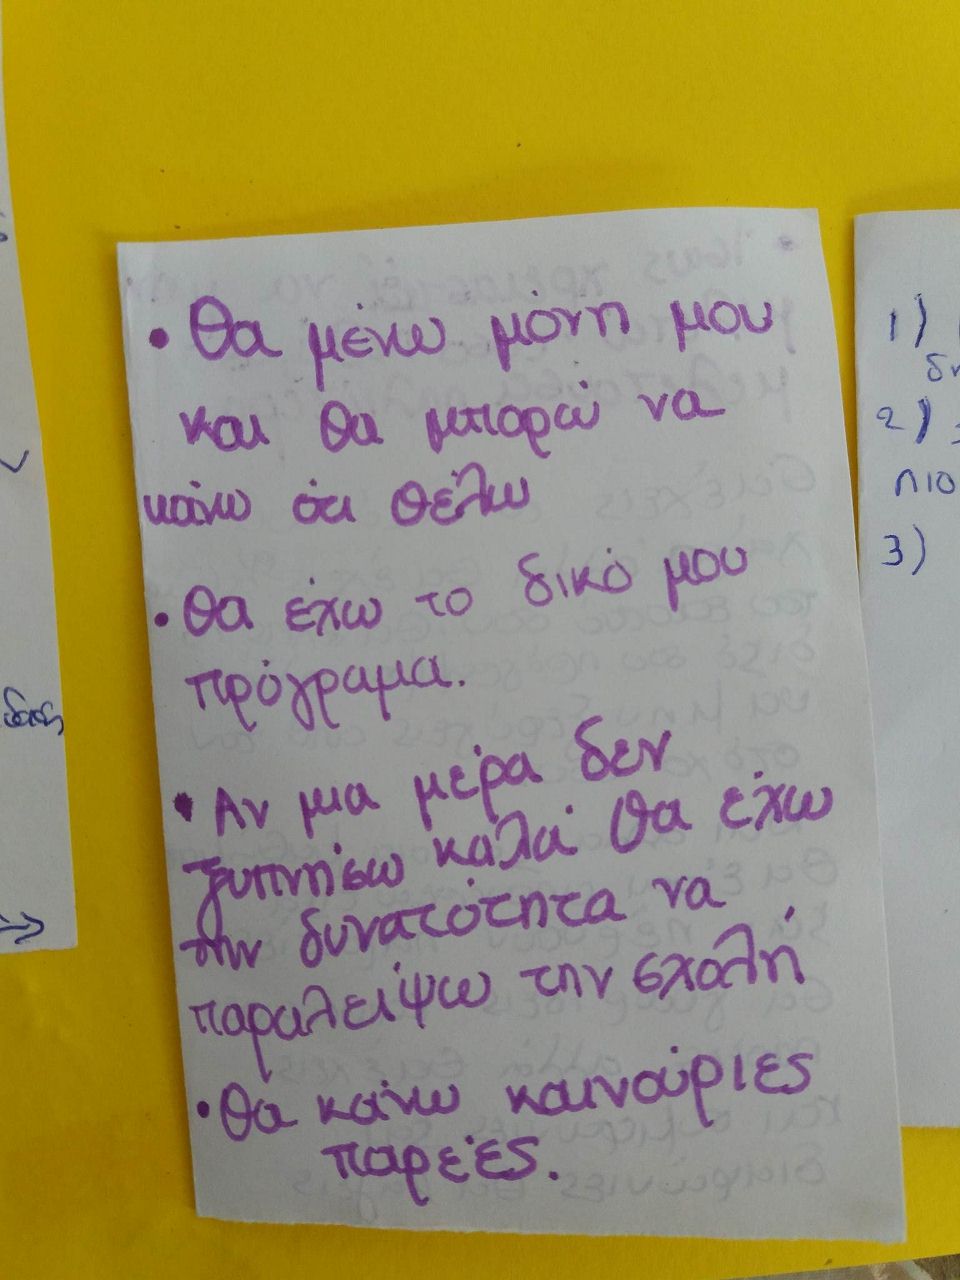 • Θα μένω μόνη μου
και θα μπορώ να
κάνω ότι θέλω
• Θα έχω το δικό μου
πρόγραμα.
• Αν μια μέρα δεν
ξυπνήσω καλά θα έχω
την δυνατότητα να
παραλείψω την σχολή
• Θα κάνω καινούριες
παρέες.
1)
2)
πιο
3)